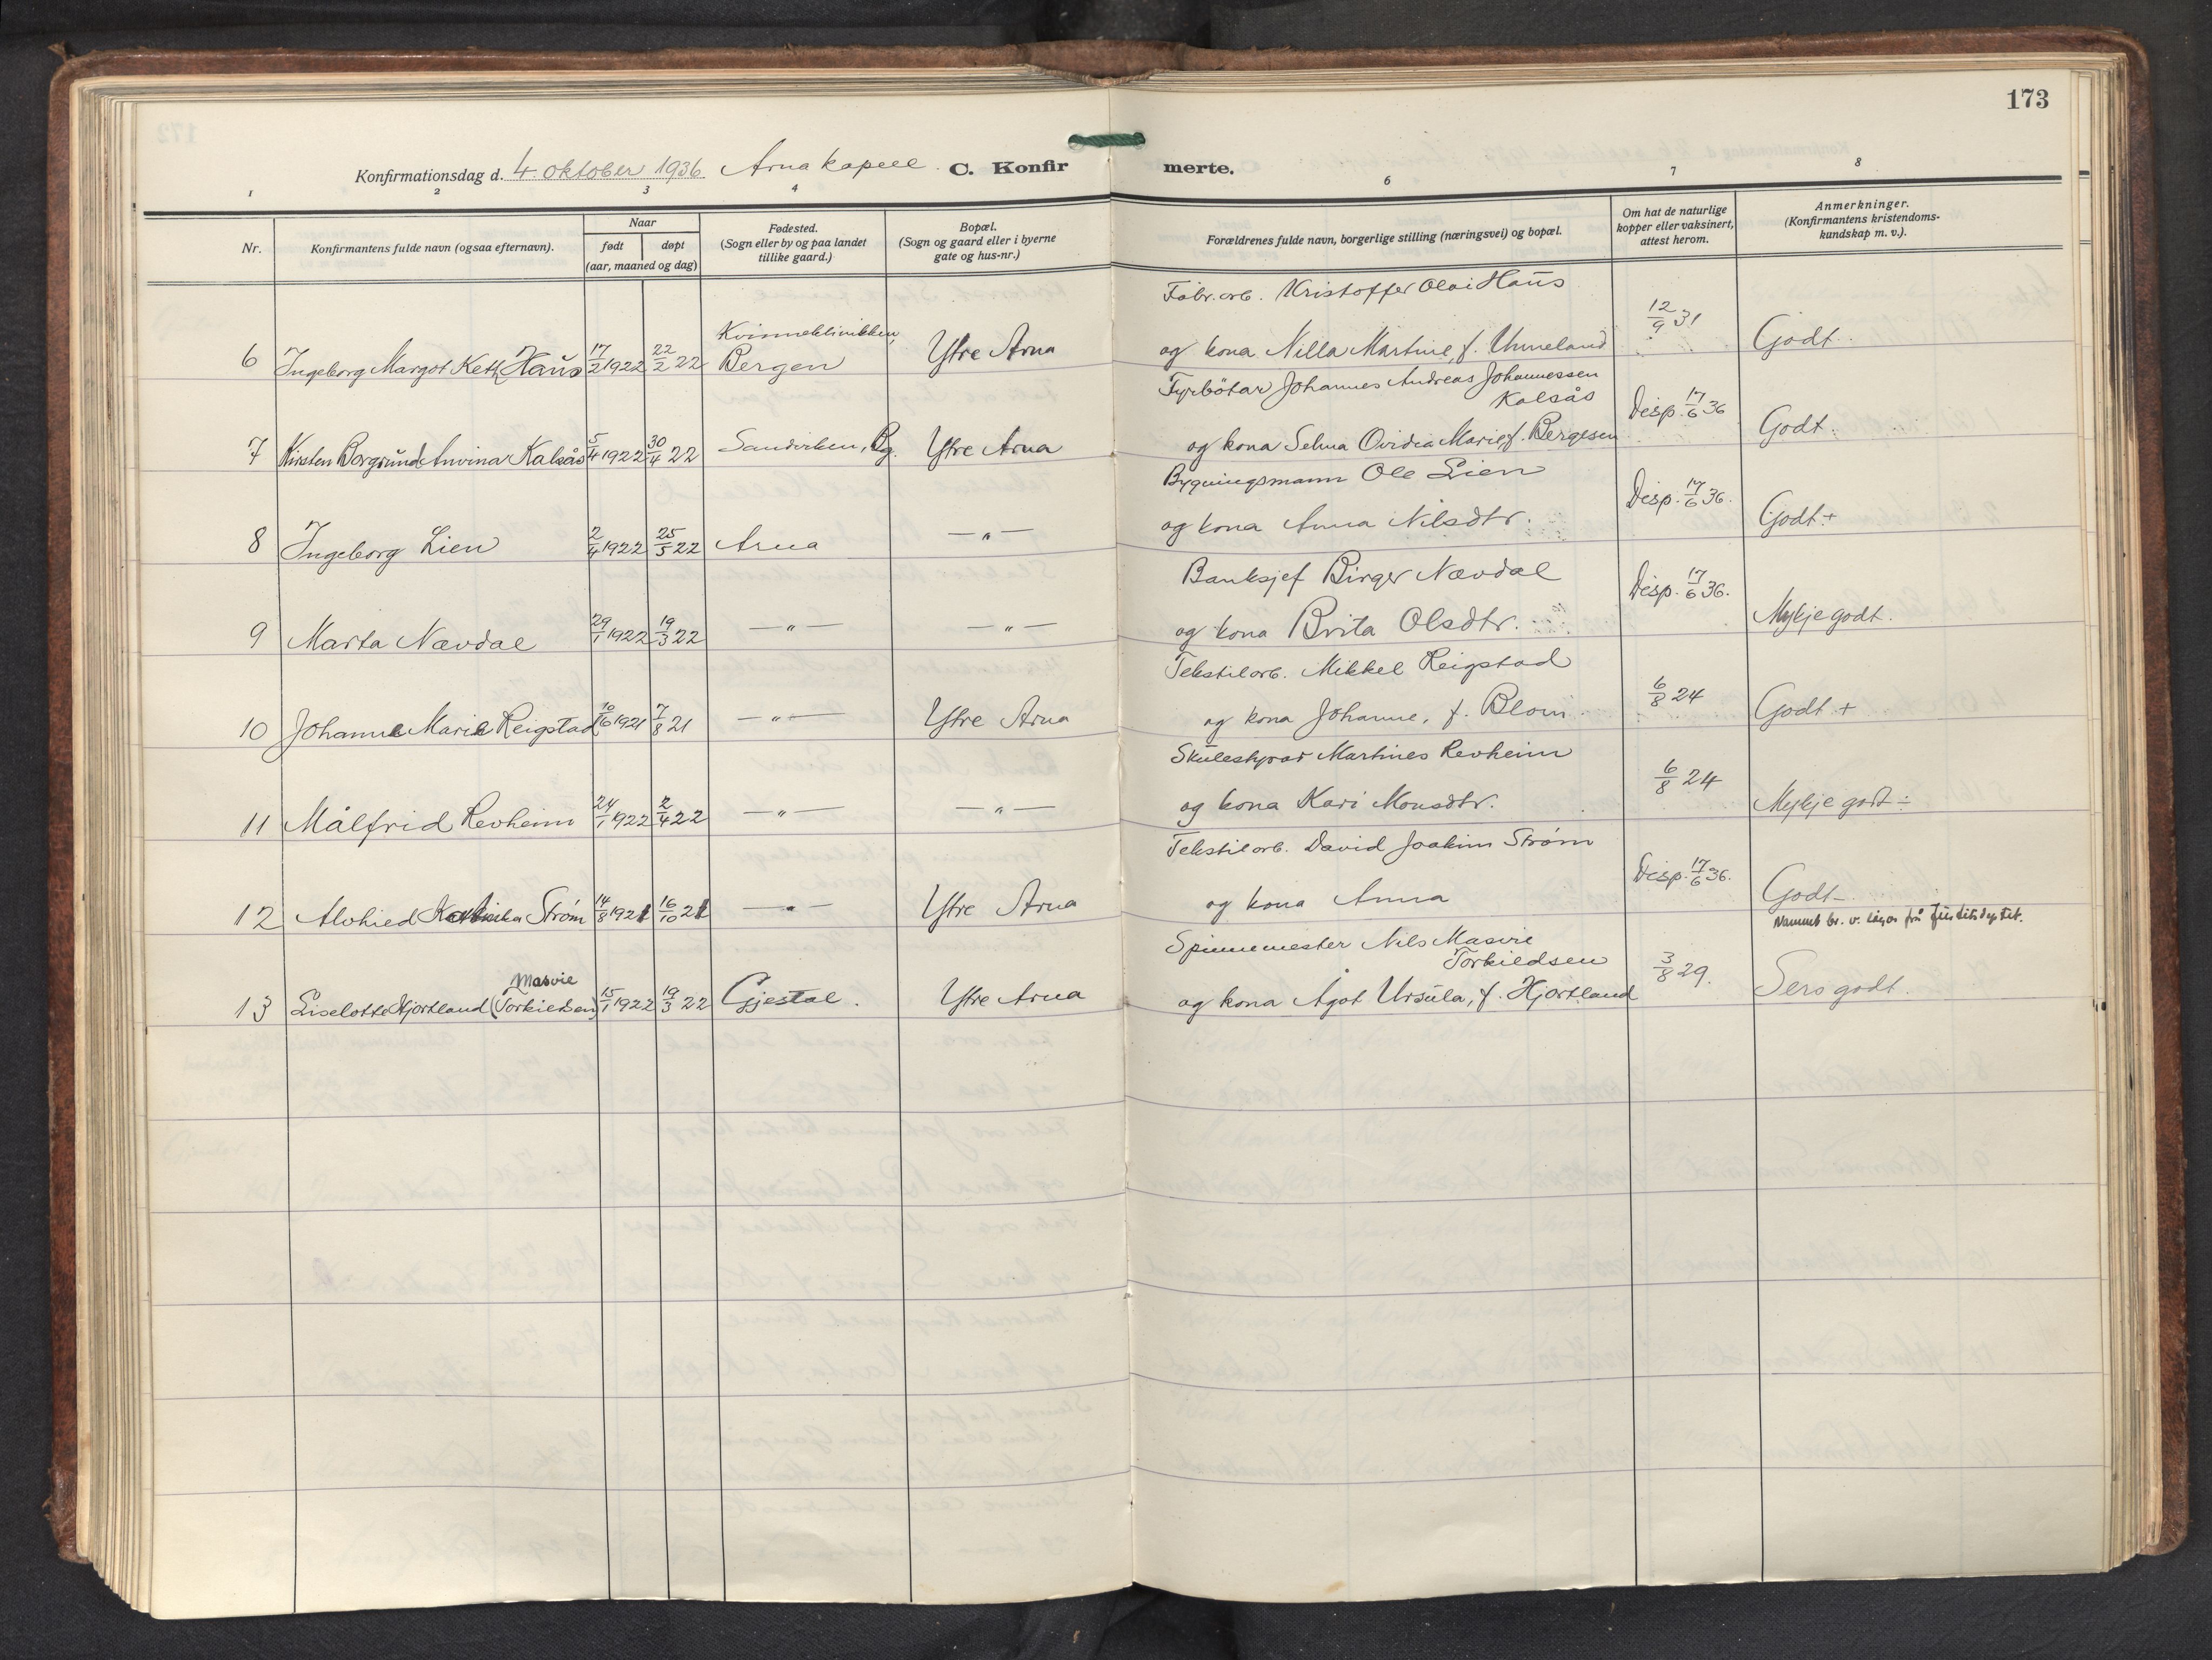 173
Konfirmationsdag d. 4. oktober 1936 Arna kapell. C. Konfirmerte.
1 2 3 4 6 7 8
Nr. Konfirmantens fulde navn (ogsaa efternavn). Naar født døpt (aar, maaned og dag) Fødested. (Sogn eller by og paa landet tillike gaard.) Bopæl. (Sogn og gaard eller i byerne gate og hus-nr.) Forældrenes fulde navn, borgerlige stilling (næringsvei) og bopæl. Om hat de naturlige kopper eller vaksinert, attest herom. Anmerkninger. (Konfirmantens kristendoms-kundskap m. v.).
Fabr.arb. Kristoffer Olai Haus
6 Ingeborg Margot Keth Haus 17/2 1922 22/2 22 Kvinneklinikken, Bergen Ytre Arna og kona Nilla Martine, f. Unneland 12/9 31 Godt.
Fyrbötar Johannes Andreas Johannessen Kalsås
7 Kirsten Borgrund Anvinar Kalsås 5/4 1922 30/4 22 Sandviken, Bg. Ytre Arna og kona Selma Ovidia Marie, f. Bergesen Disp. 17/6 36 Godt.
Bygningsmann Ole Lien
8 Ingeborg Lien 2/4 1922 25/5 22 Arna —"— og kona Anna Nilsdtr. Disp. 17/6 36. Godt +
Banksjef Birger Nævdal
9 Marta Nævdal 29/1 1922 19/3 22 —"— —"— og kona Brita Olsdtr. Disp. 17/6 36. Mykje godt.
Tekstilarb. Mikkel Reigstad
10 Johanne Marie Reigstad 10/6 1921 7/8 21 —"— Ytre Arna og kona Johanne, f. Blom. 6/8 24 Godt +
Skulestyrar Martines Revheim
11 Målfrid Revheim 24/1 1922 2/4 22 —"— —"— og kona Kari Monsdtr. 6/8 24 Mykje godt ÷
Tekstilarb. David Joakim Strøm
12 Alvhied Strøm 14/8 1921 16/10 21 —"— Ytre Arna og kona Anna Disp. 17/6 36. Godt –
Namnet br. v. frå Justitsdep.tet.
Spinnemester Nils Masvie Torkildsen
13 Liselotte Hjortland (Torkildsen) Masvie 15/1 1922 19/3 22 Gjestal. Ytre Arna og kona Ågot Ursula, f. Hjortland 3/8 29. Sers godt.